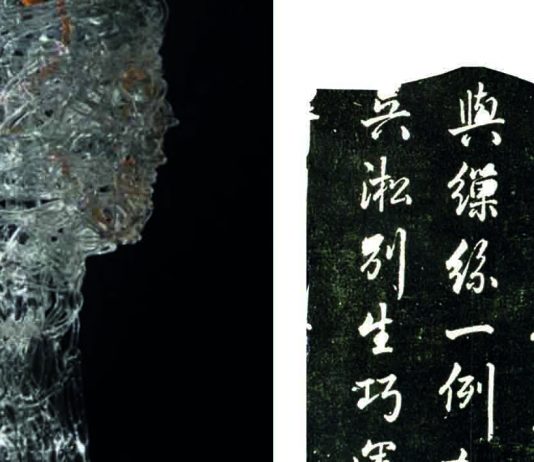 與繅絲一例
吳淞別生巧